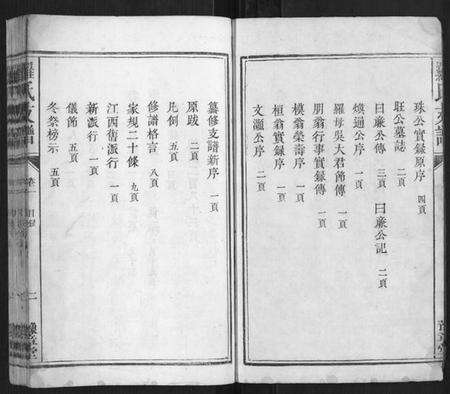 珠公實錄原序 四頁
旺公墓誌 二頁
曰㢘公傳 三頁 曰㢘公記 二頁
煥通公序 一頁
羅母吳大君節傳 一頁
朋翁行事實錄傳 一頁
模翁榮壽序 一頁
植翁實錄 一頁
文灝公序 二頁
羅氏支譜
卷
目錄
二
豫章堂
纂修支譜新序 一頁
原跋 二頁
凡例 五頁
修譜格言 八頁
家規二十條 九頁
江西舊派行 一頁
新派行 一頁
儀節 五頁
冬祭榜示 五頁